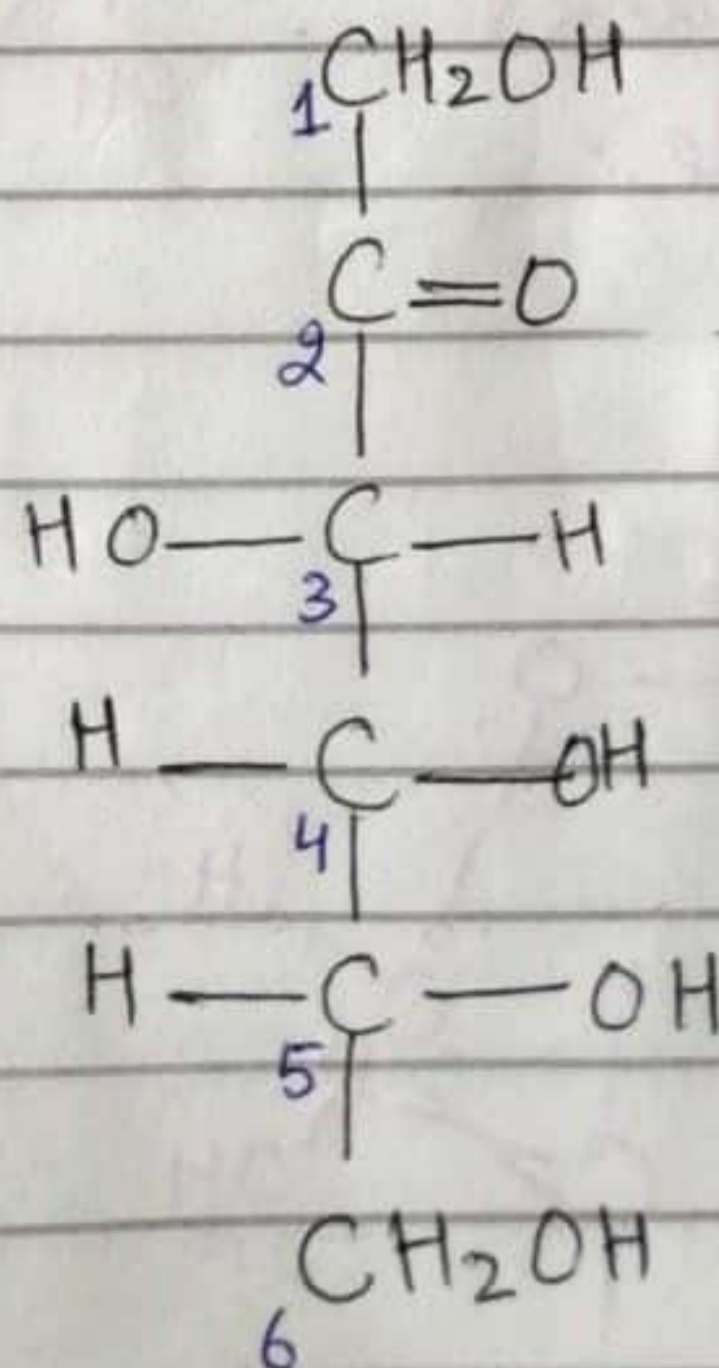 CH₂OH
1
C=O
2
HO—C—H
3
H—C—OH
4
H—C—OH
5
CH₂OH
6